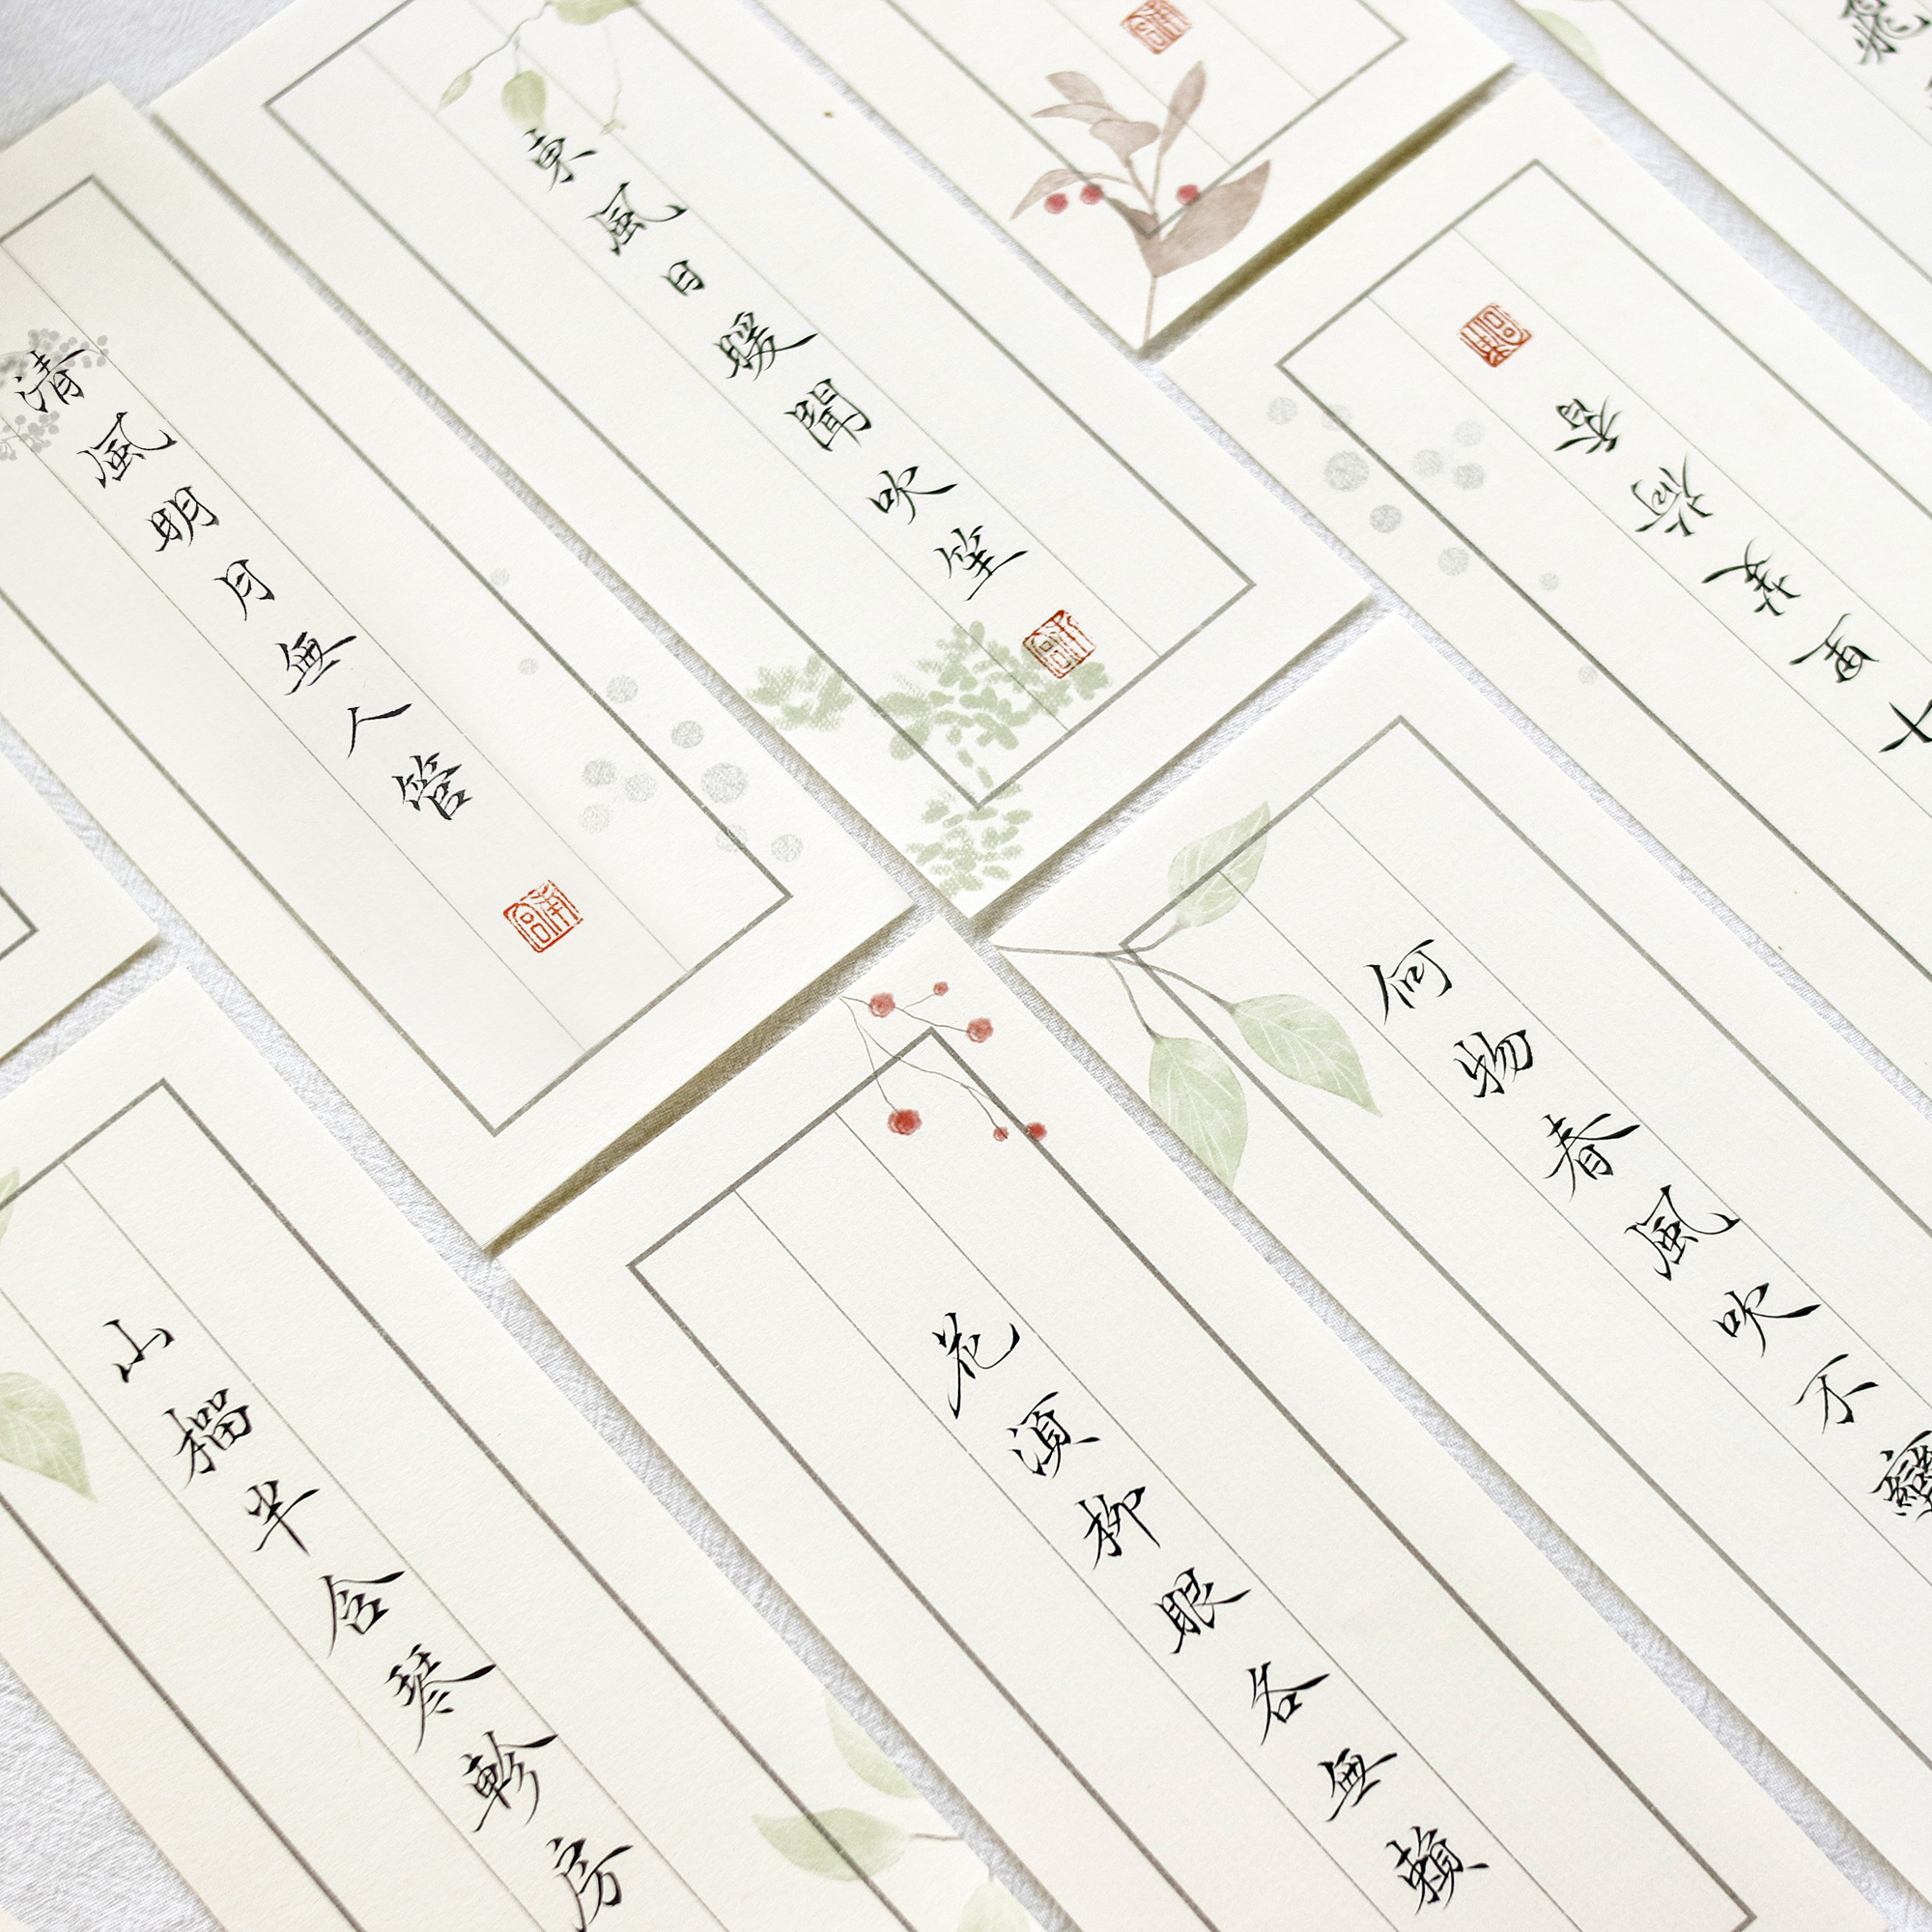 清風明月無人管
東風日暖聞吹笙
芰荷香
何物春風吹不
花須柳眼各無賴
山榴半含琴軫房